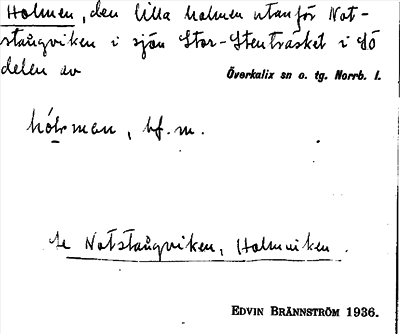 Holmen, den lilla holmen utanför Not-
stångviken i sjön Stor-Stenträsket i SÖ
delen av Överkalix sn o. tg. Norrb. l.
hólrman, bf. m.
Se Notstångviken, Holmviken.
EDVIN BRÄNNSTRÖM 1936.